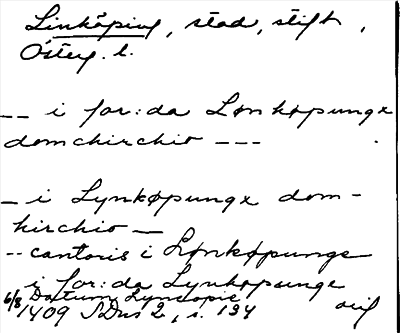 Linköping, stad, stift,
Österg. l.
-- i for:da Lønkøpungx
domchirchio ---
- i Lynkøpungx dom-
kirchio -
-- cantoris i Lønkøpunge
i for:da Lynkøpunge
6/8 Datum Lyncopie
1409 SDns 2, s. 134 avil